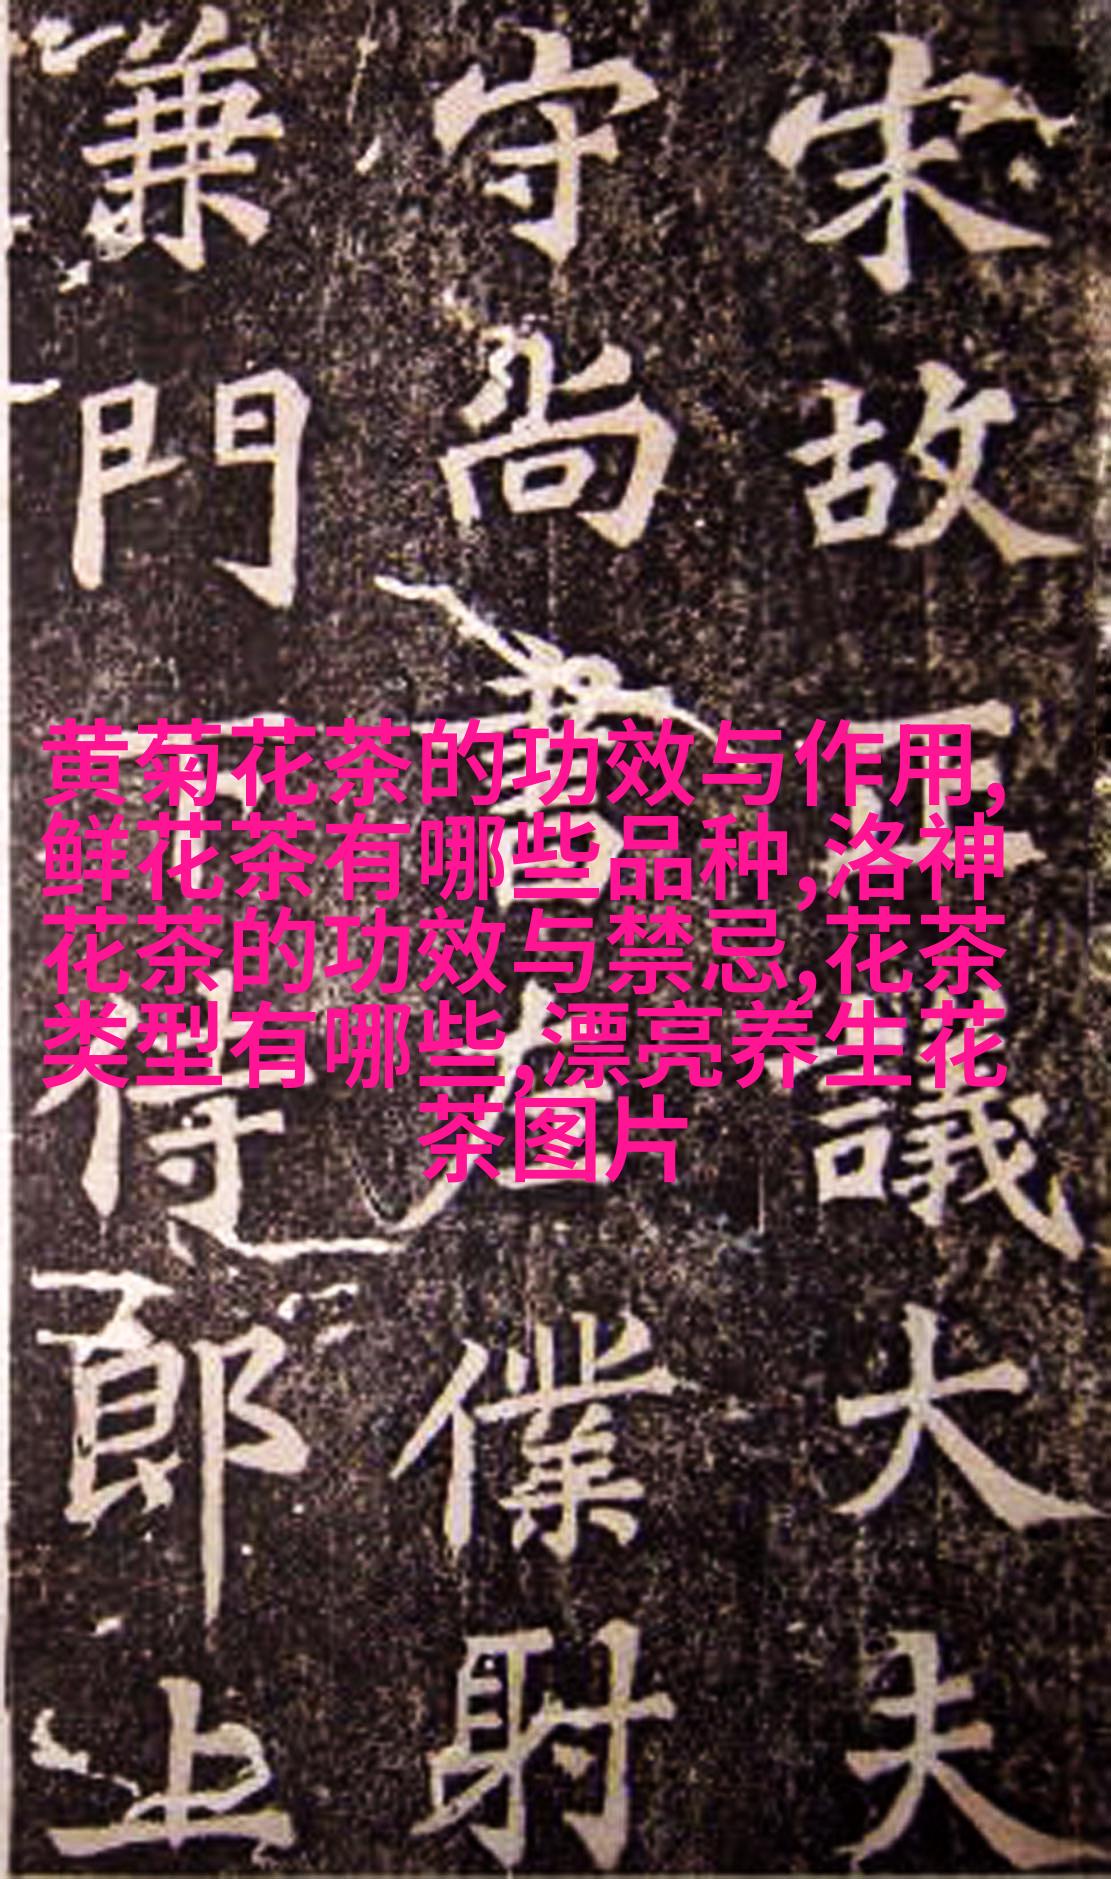 宋故正議大夫
守尚書右僕射
兼門下侍郎上
黄菊花茶的功效与作用,
鲜花茶有哪些品种,洛神
花茶的功效与禁忌,花茶
类型有哪些,漂亮养生花
茶图片